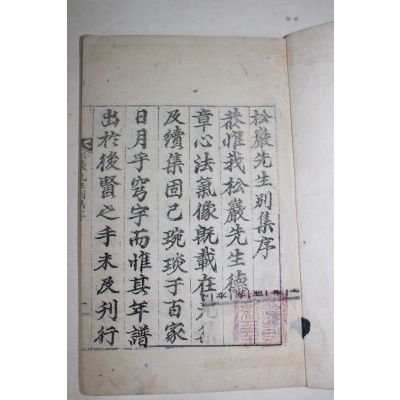 松巖先生別集序
恭惟我松巖先生德
章心法氣像旣載在元集
及續集固已琬琰于百家
日月乎穹宇而惟其年譜
出於後賢之手未及刊行